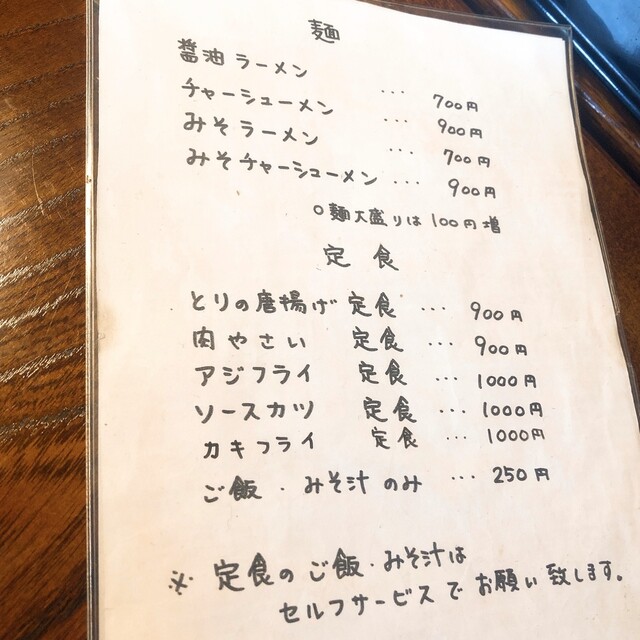 麺
醤油ラーメン ... 700円
チャーシューメン ... 900円
みそラーメン ... 700円
みそチャーシューメン ... 900円
○麺大盛りは100円増
定食
とりの唐揚げ 定食 ... 900円
肉やさい 定食 ... 900円
アジフライ 定食 ... 1000円
ソースカツ 定食 ... 1000円
カキフライ 定食 ... 1000円
ご飯・みそ汁のみ ... 250円
※定食のご飯・みそ汁は
セルフサービスでお願い致します。